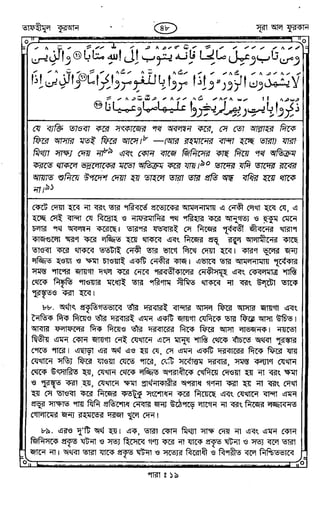 তাফহীমুল কুরআন
৪৮
সূরা আল ফুরকান
وَمَنْ تَابَ وَعَمِلَ صَالِحًا فَإِنَّهُ يَتُوبُ إِلَى اللهِ مَتَابًا ۝ وَالَّذِينَ
لَا يَشْهَدُونَ الزُّورَ ۙ وَإِذَا مَرُّوا بِاللَّغْوِ مَرُّوا كِرَامًا ۝ وَالَّذِينَ إِذَا
ذُكِّرُوا بِآيَاتِ رَبِّهِمْ لَمْ يَخِرُّوا عَلَيْهَا صُمًّا وَعُمْيَانًا ۝
যে ব্যক্তি তাওবা করে সৎকাজের পথ অবলম্বন করে, সে তো আল্লাহর দিকে
ফিরে আসার মতই ফিরে আসে। —(আর রহমানের বান্দা হচ্ছে তারা) যারা
মিথ্যা সাক্ষ্য দেয় না এবং কোন বাজে জিনিসের কাছ দিয়ে পথ অতিক্রম
করতে থাকলে ভদ্রলোকের মতো অতিক্রম করে যায়। তাদের যদি তাদের রবের
আয়াত শুনিয়ে উপদেশ দেয়া হয় তাহলে তারা তার প্রতি অন্ধ বধির হয়ে থাকে
না।
কেটে দেয়া হবে না বরং তার পরিবর্তে প্রত্যেকের আমলনামায় এ নেকী লেখা হবে যে, এ
হচ্ছে সেই বান্দা যে বিদ্রোহ ও নাফরমানির পথ পরিহার করে আনুগত্য ও হুকুম মেনে
চলার পথ অবলম্বন করেছে। তারপর যতবারই সে নিজের পূর্ববর্তী জীবনের খারাপ
কাজগুলো স্মরণ করে লজ্জিত হয়ে থাকবে এবং নিজের প্রভু রব্বুল আলামীনের কাছে
তাওবা করে থাকবে ততটাই নেকী তার ভাগ্যে লিখে দেয়া হবে। কারণ ভুলের জন্য
লজ্জিত হওয়া ও ক্ষমা চাওয়াই একটি নেকীর কাজ। এভাবে তার আমলনামায় পূর্বেকার
সমস্ত পাপের জায়গা দখল করে নেবে পরবর্তীকালের নেকীসমূহ এবং কেবলমাত্র শাস্তি
থেকে নিষ্কৃতি পাওয়ার মধ্যেই তার পরিণাম সীমিত থাকবে না বরং উল্টো তাকে
পুরস্কৃতও করা হবে।
৮৮. অর্থাৎ প্রকৃতিগতভাবে তাঁর দরবারই বান্দার আসল ফিরে আসার জায়গা এবং
নৈতিক দিক দিয়েও তাঁর দরবারই এমন একটি জায়গা যেদিকে তার ফিরে আসা উচিত।
আবার ফলাফলের দিক দিয়েও তাঁর দরবারের দিকে ফিরে আসা লাভজনক। নয়তো
দ্বিতীয় এমন কোন জায়গা নেই যেখানে এসে মানুষ শাস্তি থেকে বাঁচতে অথবা পুরস্কার
পেতে পারে। এছাড়া এর অর্থ এও হয় যে, সে এমন একটি দরবারের দিকে ফিরে যায়
যেখানে সত্যি ফিরে যাওয়া যেতে পারে, যেটি সর্বোত্তম দরবার, সমস্ত কল্যাণ যেখান
থেকে উৎসারিত হয়, যেখান থেকে লজ্জিত অপরাধীকে খেদিয়ে দেওয়া হয় না বরং ক্ষমা
ও পুরস্কৃত করা হয়, যেখানে ক্ষমা প্রার্থনাকারীর অপরাধ গণনা করা হয় না বরং দেখা
হয় সে তাওবা করে নিজের কতটুকু সংশোধন করে নিয়েছে এবং যেখানে বান্দা এমন
প্রভুর সাক্ষাত পায় যিনি প্রতিশোধ নেবার জন্য উঠেপড়ে লাগেন না বরং নিজের লজ্জাবনত
গোলামের জন্য রহমতের দরজা খুলে দেন।
৮৯. এরও দু'টি অর্থ হয়। এক, তারা কোন মিথ্যা সাক্ষ্য দেয় না এবং এমন কোন
জিনিসকে প্রকৃত ঘটনা ও সত্য হিসেবে গণ্য করে না যাকে প্রকৃত ঘটনা ও সত্য বলে তারা
জানে না। অথবা তারা যাকে প্রকৃত ঘটনা ও সত্যের বিরোধী ও বিপরীত বলে নিশ্চিতভাবে
পারা : ১৯